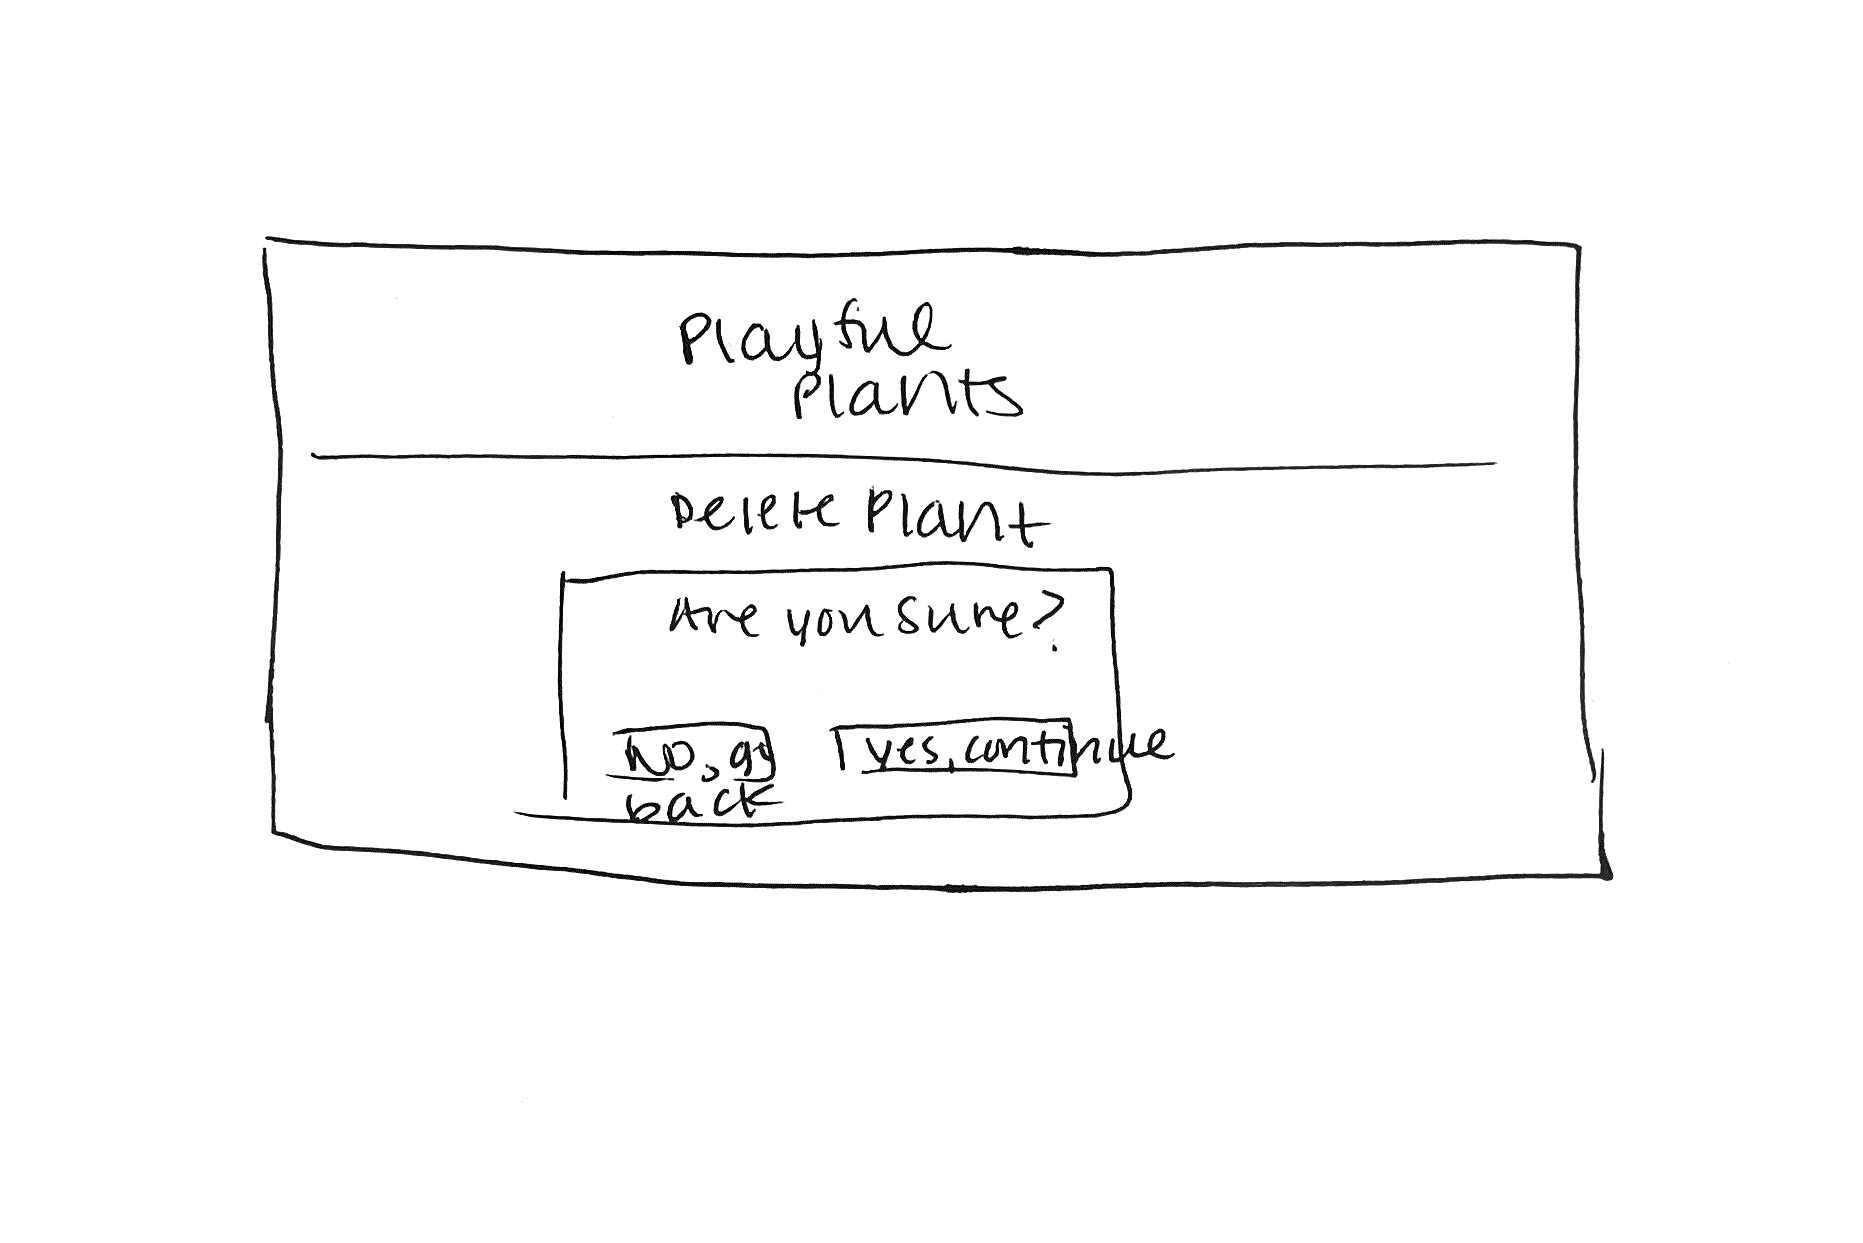 Playful
Plants
Delete Plant
Are you sure?
No, go
back
yes, continue